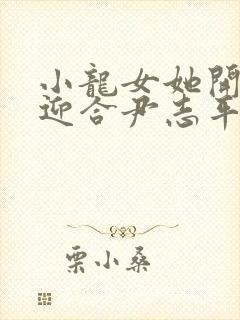 小龍女她開
迎合尹志平
栗小桑